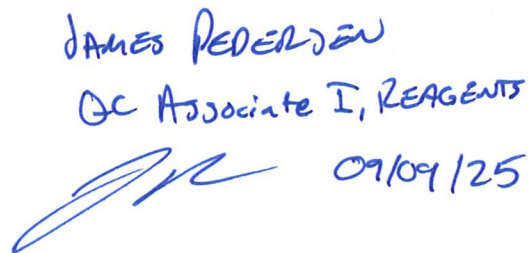 JAMES PEDERSEN
QC Associate I, REAGENTS
09/09/25